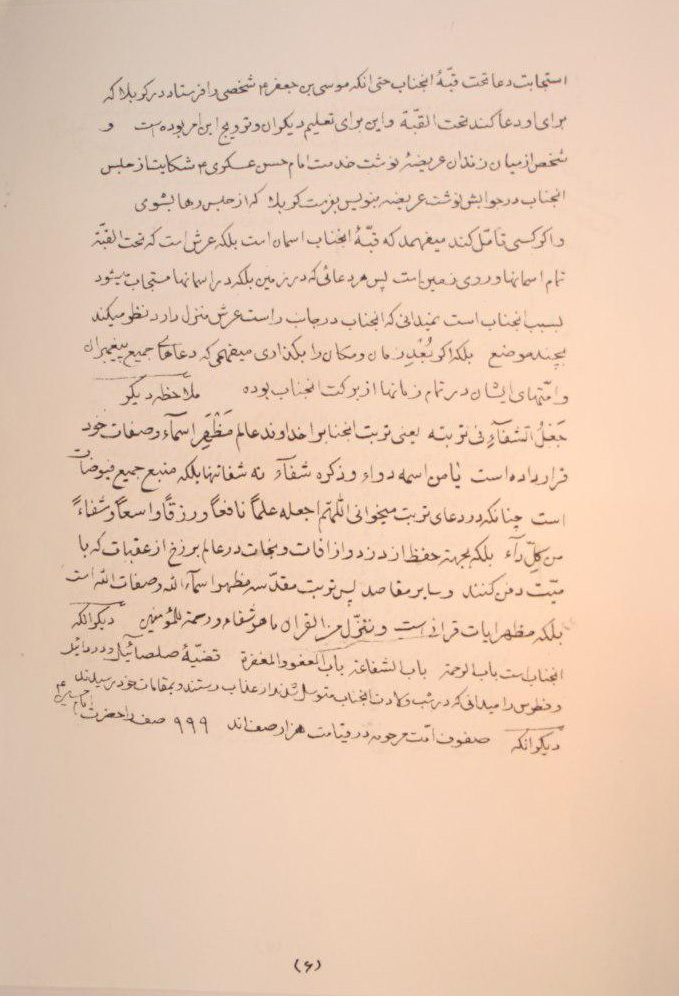 استجابت دعا تحت قبّهٔ انجناب حتی انکه موسی بن جعفر ۴ شخصی را فرستاد در کربلا که
برای او دعا کند تحت القبّة و این برای تعلیم دیکران و ترویج این امر بوده است و
شخص از میان زندان عریضهٔ نوشت خدمت امام حسن عسکری ۴ شکایت از حبس
انجناب در جوابش نوشت عریضه بنویس بفرست کربلا که از حبس رها بشوی
و اکر کسی تامّل کند میفهمد که قبّهٔ انجناب اسمان است بلکه عرش است که تحت القبّة
تمام اسمانها و روی زمین است پس هر دعائی که در زمین بلکه در اسمانها مستجاب میشود
بسبب انجناب است نمیدانی که انجناب در جانب راست عرش منزل دارد نظر میکند
بچند موضع بلکه اکر بُعْدِ زمان و مکان را بکذاری میفهمی که دعاهای جمیع پیغمبران
و امّتهای ایشان در تمام زمانها از برکت انجناب بوده ملاحظه دیکر
جَعْلُ الشفآءِ فی تربته یعنی تربت انجناب را خداوند عالم مَظْهَرِ اسمآء و صفات خود
قرار داده است یا من اسمه دواء و ذکره شفآء نه شفا تنها بلکه منبع جمیع فیوضات
است چنانکه در دعای تربت میخوانی اللّهم اجعله علماً نافعاً و رزقاً واسعاً و شفاءً
من کلّ دآء بلکه بجهة حفظ از دزد و از افات و نجات در عالم برزخ از عقبات که با
میّت دفن کنند و سایر مقاصد پس تربت مقدّسه مظهر اسمآء اللّه و صفات اللّه است
بلکه مظهر ایات قرانی است و ننزّل من القران ما هو شفاء و رحمة للمؤمنین دیکر انکه
انجناب است باب الرحمة باب الشفاعة باب العفو و المغفرة قضیّهٔ صلصائیل و دردائیل
و فطرس را میدانی که در شب ولادت انجناب متوسل شدند از عذاب رستند و بمقامات خود رسیدند
دیکر انکه صفوف امّت مرحومه در قیامت هزار صف اند ۹۹۹ صف را حضرت
(۶)